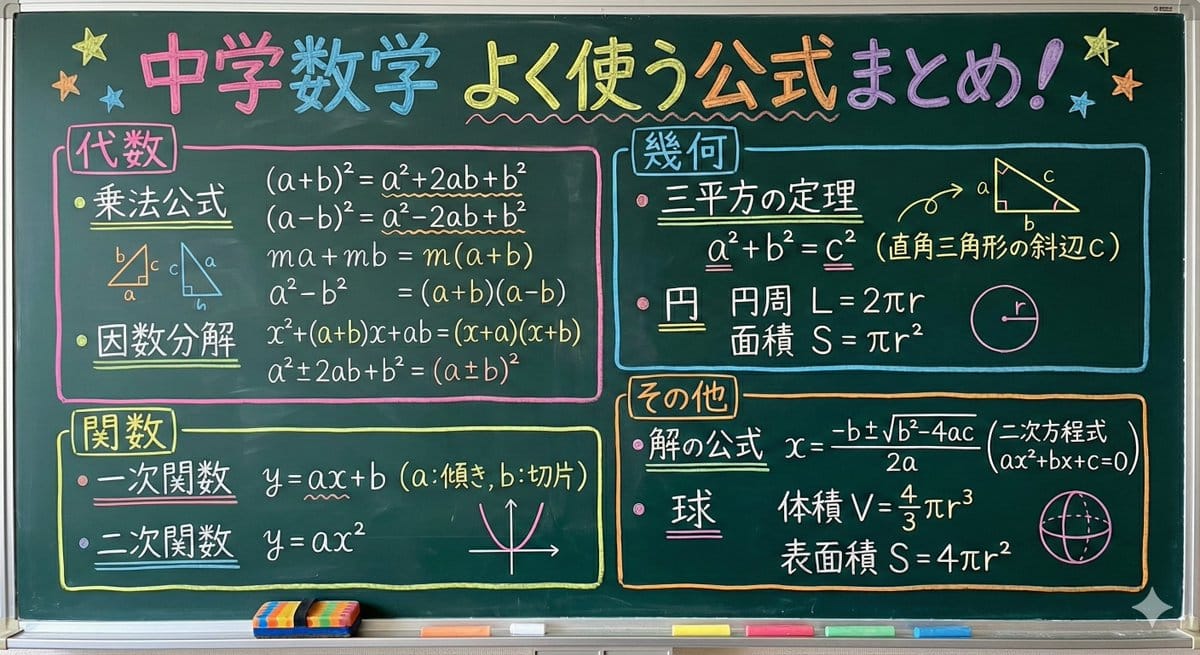 中学数学 よく使う公式まとめ!
代数
・乗法公式
(a+b)²=a²+2ab+b²
(a-b)²=a²-2ab+b²
b
c
a
c
a
ma+mb=m(a+b)
a²-b² =(a+b)(a-b)
・因数分解
x²+(a+b)x+ab=(x+a)(x+b)
a²±2ab+b²=(a±b)²
関数
・一次関数 y=ax+b (a:傾き,b:切片)
・二次関数 y=ax²
幾何
・三平方の定理
a
c
b
a²+b²=c² (直角三角形の斜辺c)
・円 円周 L=2πr
面積 S=πr²
r
その他
・解の公式 x=(-b±√b²-4ac)/2a
(二次方程式
ax²+bx+c=0)
・球 体積 V=4/3πr³
表面積 S=4πr²